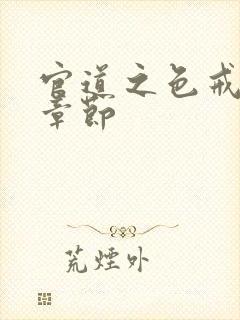 官道之色戒
章节
荒烟外